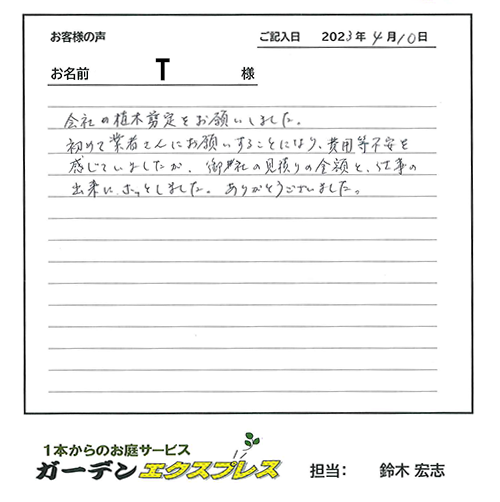 お客様の声
ご記入日 2023年4月10日
お名前 T 様
会社の植木剪定をお願いしました。
初めて業者さんにお願いすることになり、費用等不安を
感じていましたが、御社の見積りの金額と、仕事の
出来に、ホッとしました。ありがとうございました。
1本からのお庭サービス
ガーデンエクスプレス
担当： 鈴木 宏志